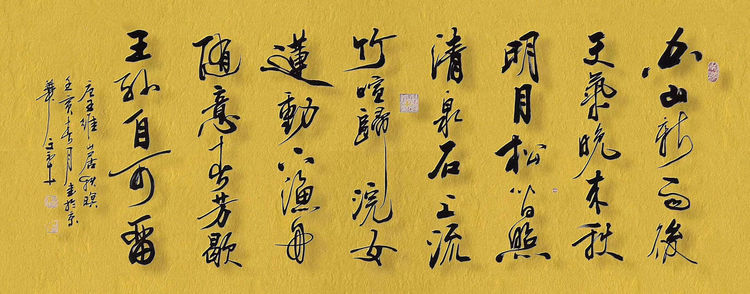 空山新雨後
天氣晚來秋
明月松間照
清泉石上流
竹喧歸浣女
蓮動下漁舟
隨意春芳歇
王孫自可留
唐王維山居秋暝
亥春月書於京
華